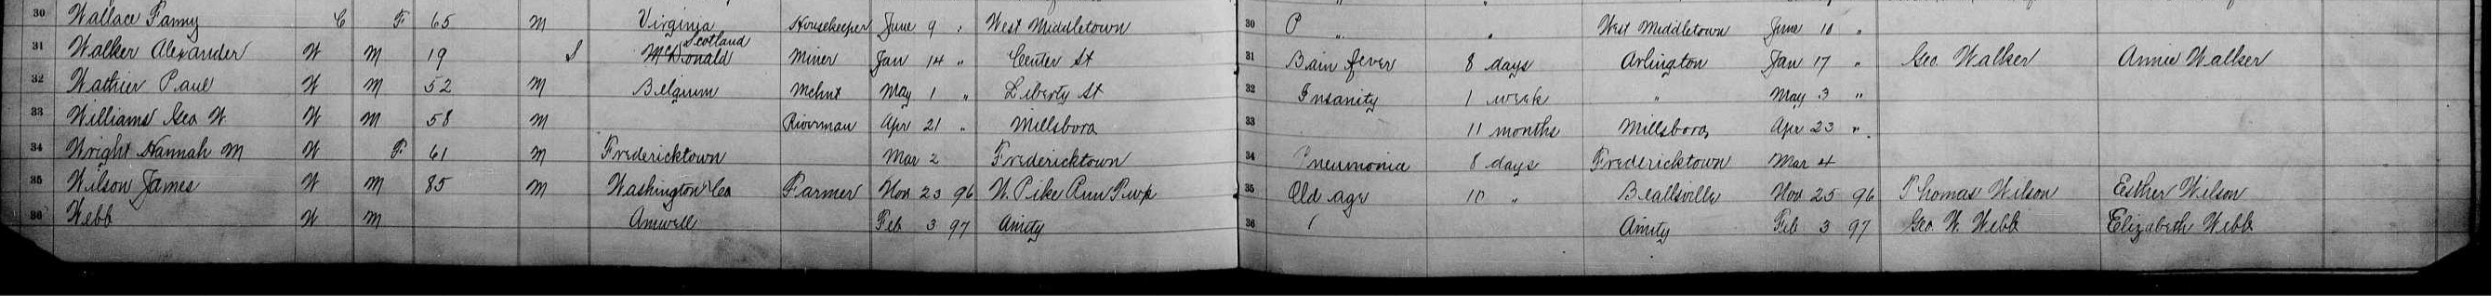 30 Wallace Fanny C F 65 M Virginia Housekeeper June 9 " West Middletown 30 P " " West Middletown June 10 "
31 Walker Alexander W M 19 S McDonald Scotland Miner Jan 14 " Center St 31 Bain fever 8 days Arlington Jan 17 " Geo. Walker Annie Walker
32 Wathier Paul W M 52 M Belgium Mchnt May 1 " Liberty St 32 Insanity 1 week " May 3 "
33 Williams Geo W. W M 58 M Riverman Apr 21 " Millsboro 33 11 months Millsboro Apr 23 "
34 Wright Hannah M W F 61 M Fredericktown Mar 2 Fredericktown 34 Pneumonia 8 days Fredericktown Mar 4
35 Wilson James W M 85 M Washington Co Farmer Nov 23 96 W. Pike Run Twp 35 Old age 10 " Beallsville Nov 25 96 Thomas Wilson Esther Wilson
36 Webb W M Amwell Feb 3 97 Amity 36 Amity Feb 3 97 Geo. W. Webb Elizabeth Webb